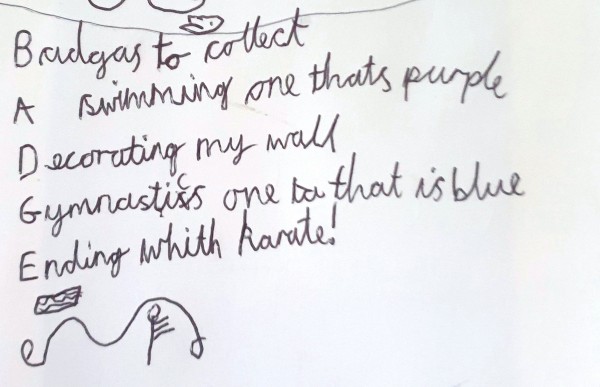 Badgas to collect
A swimming one thats purple
Decorating my wall
Gymnastics one that is blue
Ending whith karate!